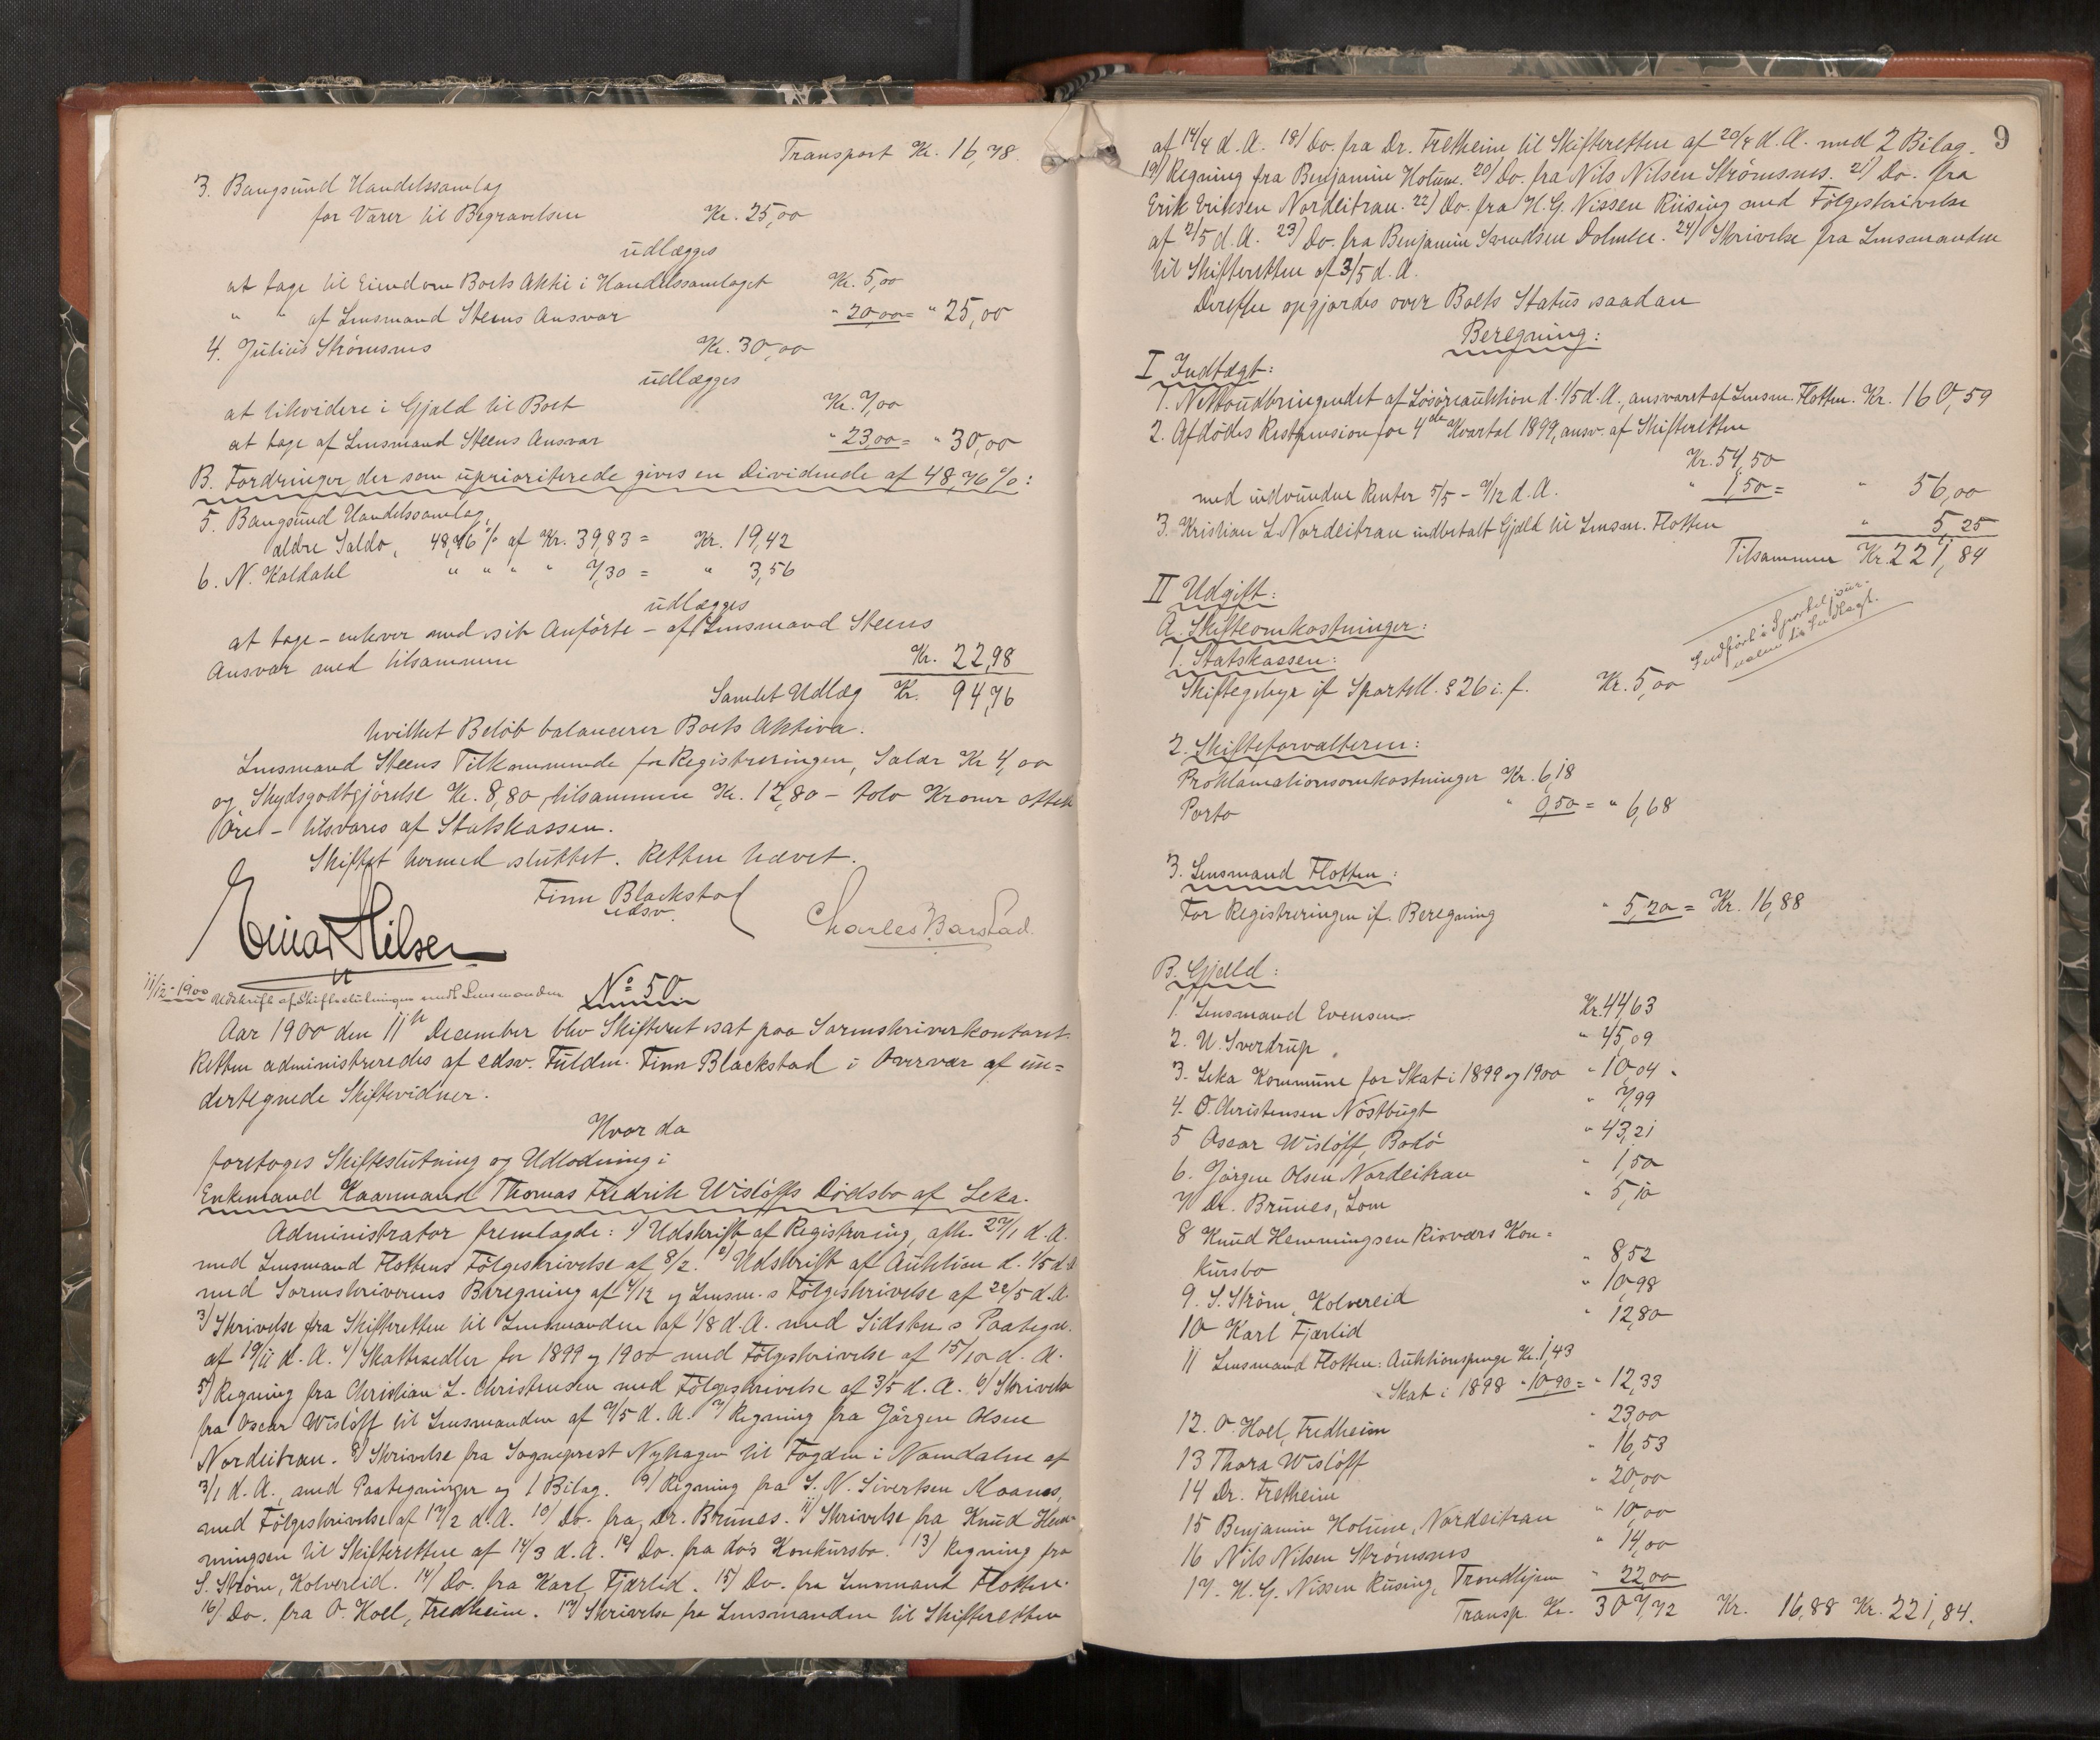 Transport Kr. 16,78.
3. Bangsund Handelssamlag
for Varer til Begravelsen Kr. 25,00
udlægges
at tage til Eiendom Boets Aktie i Handelssamlaget Kr. 5,00
" " af Lensmand Steens Ansvar " 20,00 = " 25,00
4. Julius Strømsnes Kr. 30,00
udlægges
at likvidere i Gjæld til Boet Kr. 7,00
at tage af Lensmand Steens Ansvar " 23,00 = " 30,00
B. Fordringer der som uprioriterede gives en Dividende af 48,76 %:
5. Bangsund Handelssamlag,
ældre Saldo, 48,76 % af Kr. 39,83 = Kr. 19,42
6. N. Kaldahl " " " " 7,30 = " 3,56
udlægges
at tage – enhver med sit Anførte – af Lensmand Steens
Ansvar med tilsammen Kr. 22,98
Samlet Udlæg Kr. 94,76
hvilket Beløb balancerer Boets Aktiva.
Lensmand Steens Tilkommende for Registreringen, Salær Kr 4,00
og Skydsgodtgjørelse Kr. 8,80, tilsammen Kr. 12,80 – tolv Kroner otteti
Øre – tilsvares af Statskassen.
Skiftet hermed sluttet. Retten hævet.
Finn Blackstad
edsv.
Einar Hilsen
Charles Barstad
11/12-1900 Udskrift af Skifteslutningen sendt Lensmanden
No 50
Aar 1900 den 11te December blev Skifteret sat paa Sorenskriverkontoret.
Retten administreredes af edsv. Fuldm. Finn Blackstad i Overvær af un=
dertegnede Skiftevidner.
Hvor da
foretoges Skifteslutning og Udlodning i
Enkemand Kaarmand Thomas Fredrik Wisløffs Dødsbo af Leka.
Administrator fremlagde: 1) Udskrift af Registrering, afh. 27/1 d. A.
med Lensmand Flottens Følgeskrivelse af 8/2. 2) Udskrift af Auktion d. 1/5 d. A.
med Sorenskriverens Beregning af 7/12 og Lensm.s Følgeskrivelse af 22/5 d. A.
3) Skrivelse fra Skifteretten til Lensmanden af 1/8 d. A. med Sidstn.s Paategn.
af 19/11 d. A. 4) Skattesedler for 1899 og 1900 med Følgeskrivelse af 15/10 d. A.
5) Regning fra Christian L. Christensen med Følgeskrivelse af 3/5 d. A. 6) Skrivelse
fra Oscar Wisløff til Lensmanden af 7/5 d. A. 7) Regning fra Jørgen Olsen
Nordeitran. 8) Skrivelse fra Sogneprest Nyhagen til Fogden i Namdalen af
3/1 d. A., med Paategninger og 1 Bilag. 9) Regning fra S. N. Sivertsen Moanes,
med Følgeskrivelse af 17/2 d. A. 10) Do. fra Dr. Brunes. 11) Skrivelse fra Knud Hem=
mingsen til Skifteretten af 14/3 d. A. 12) Do. fra do's Konkursbo. 13) Regning fra
S. Strøm, Kolvereid. 14) Do. fra Karl Fjærlid. 15) Do. fra Lensmand Flotten.
16) Do. fra O. Hoel, Fredheim. 17) Skrivelse fra Lensmanden til Skifteretten
9
af 14/4 d. A. 18) Do. fra Dr. Fretheim til Skifteretten af 20/4 d. A. med 2 Bilag.
19) Regning fra Benjamin Holum. 20) Do. fra Nils Nilsen Strømsnes. 21) Do. fra
Erik Eriksen Nordeitran. 22) Do. fra H. G. Nissen Riising med Følgeskrivelse
af 2/5 d. A. 23) Do. fra Benjamin Svendsen Dolmen. 24) Skrivelse fra Lensmanden
til Skifteretten af 3/5 d. A.
Derefter opgjordes over Boets Status saadan
Beregning:
I Indtægt:
1. Nettoudbringendet af Løsøreauktion d. 1/5 d. A., ansvaret af Lensm. Flotten. Kr. 160,59
2. Afdødes Restpension for 4de Kvartal 1899, ansv. af Skifteretten
Kr. 54,50
med indvundne Renter 5/5 – 9/12 d. A. " 1,50 = " 56,00
3. Kristian L. Nordeitran indbetalt Gjæld til Lensm. Flotten " 5,25
Tilsammen Kr. 221,84
II Udgift:
A. Skifteomkostninger:
Indført i Sporteljour-
nalen
1. Statskassen:
Skiftegebyr if. Sportell. § 26 i. f. Kr. 5,00
2. Skifteforvalteren:
Proklamationsomkostninger Kr. 6,18
Porto " 0,50 = " 6,68
3. Lensmand Flotten:
For Registreringen if. Beregning " 5,20 = Kr. 16,88
B. Gjæld:
1. Lensmand Evensen Kr. 44,63
2. U. Sverdrup " 45,09
3. Leka Kommune for Skat i 1899 og 1900 " 10,04
4. O. Christensen Nøstbugt " 7,99
5 Oscar Wisløff, Bodø " 43,21
6. Jørgen Olsen Nordeitran " 1,50
7 Dr. Brunes, Lom " 5,10
8 Knud Hemmingsen Risværs Kon=
kursbo " 8,52
9. S. Strøm, Kolvereid " 10,98
10 Karl Fjærlid " 12,80
11 Lensmand Flotten: Auktionspenge Kr. 1,43
Skat i 1898 " 10,90 = " 12,33
12. O. Hoel, Fredheim " 23,00
13 Thora Wisløff " 16,53
14 Dr. Fretheim " 20,00
15 Benjamin Holum, Nordeitran " 10,00
16 Nils Nilsen Strømsnes " 14,00
17. H. G. Nissen Riising, Trondhjem " 22,00
Transp. Kr. 307,72 Kr. 16,88 Kr. 221,84.